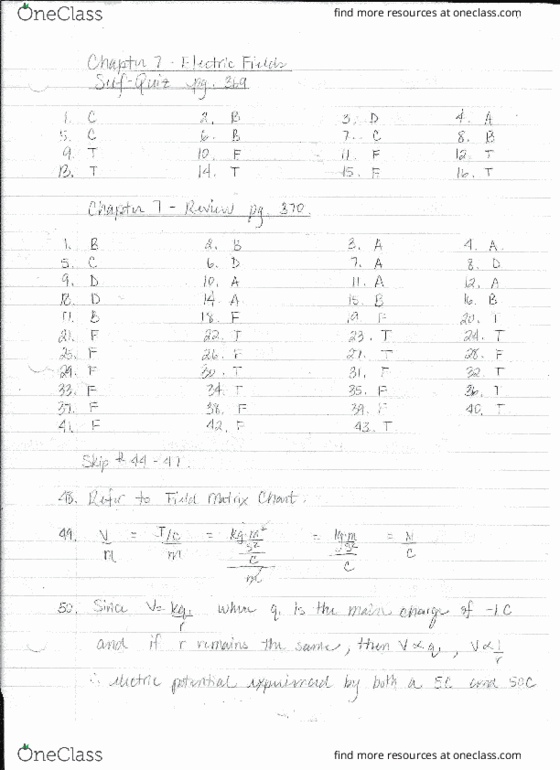 OneClass find more resources at oneclass.com
Chapter 7 - Electric Fields
Self-Quiz pg. 369
1. C 2. B 3. D 4. A
5. C 6. B 7. C 8. B
9. T 10. F 11. F 12. T
13. T 14. T 15. F 16. T
Chapter 7 - Review pg. 370
1. B 2. B 3. A 4. A
5. C 6. D 7. A 8. D
9. D 10. A 11. A 12. A
13. D 14. A 15. B 16. B
17. B 18. F 19. F 20. T
21. F 22. T 23. T 24. T
25. F 26. F 27. T 28. F
29. F 30. T 31. F 32. T
33. F 34. T 35. F 36. T
37. F 38. F 39. F 40. T
41. F 42. F 43. T
Skip # 44 - 47
48. Refer to Field Matrix Chart.
49. V/m = J/C/m = kg·m²/s²/C/m = kg·m/s²/C = N/C
50. Since V = kq₁/r where q₁ is the main charge of -1C
and if r remains the same, then V ∝ q₁, V ∝ 1/r
∴ electric potential experienced by both a 5C and 50C
OneClass find more resources at oneclass.com